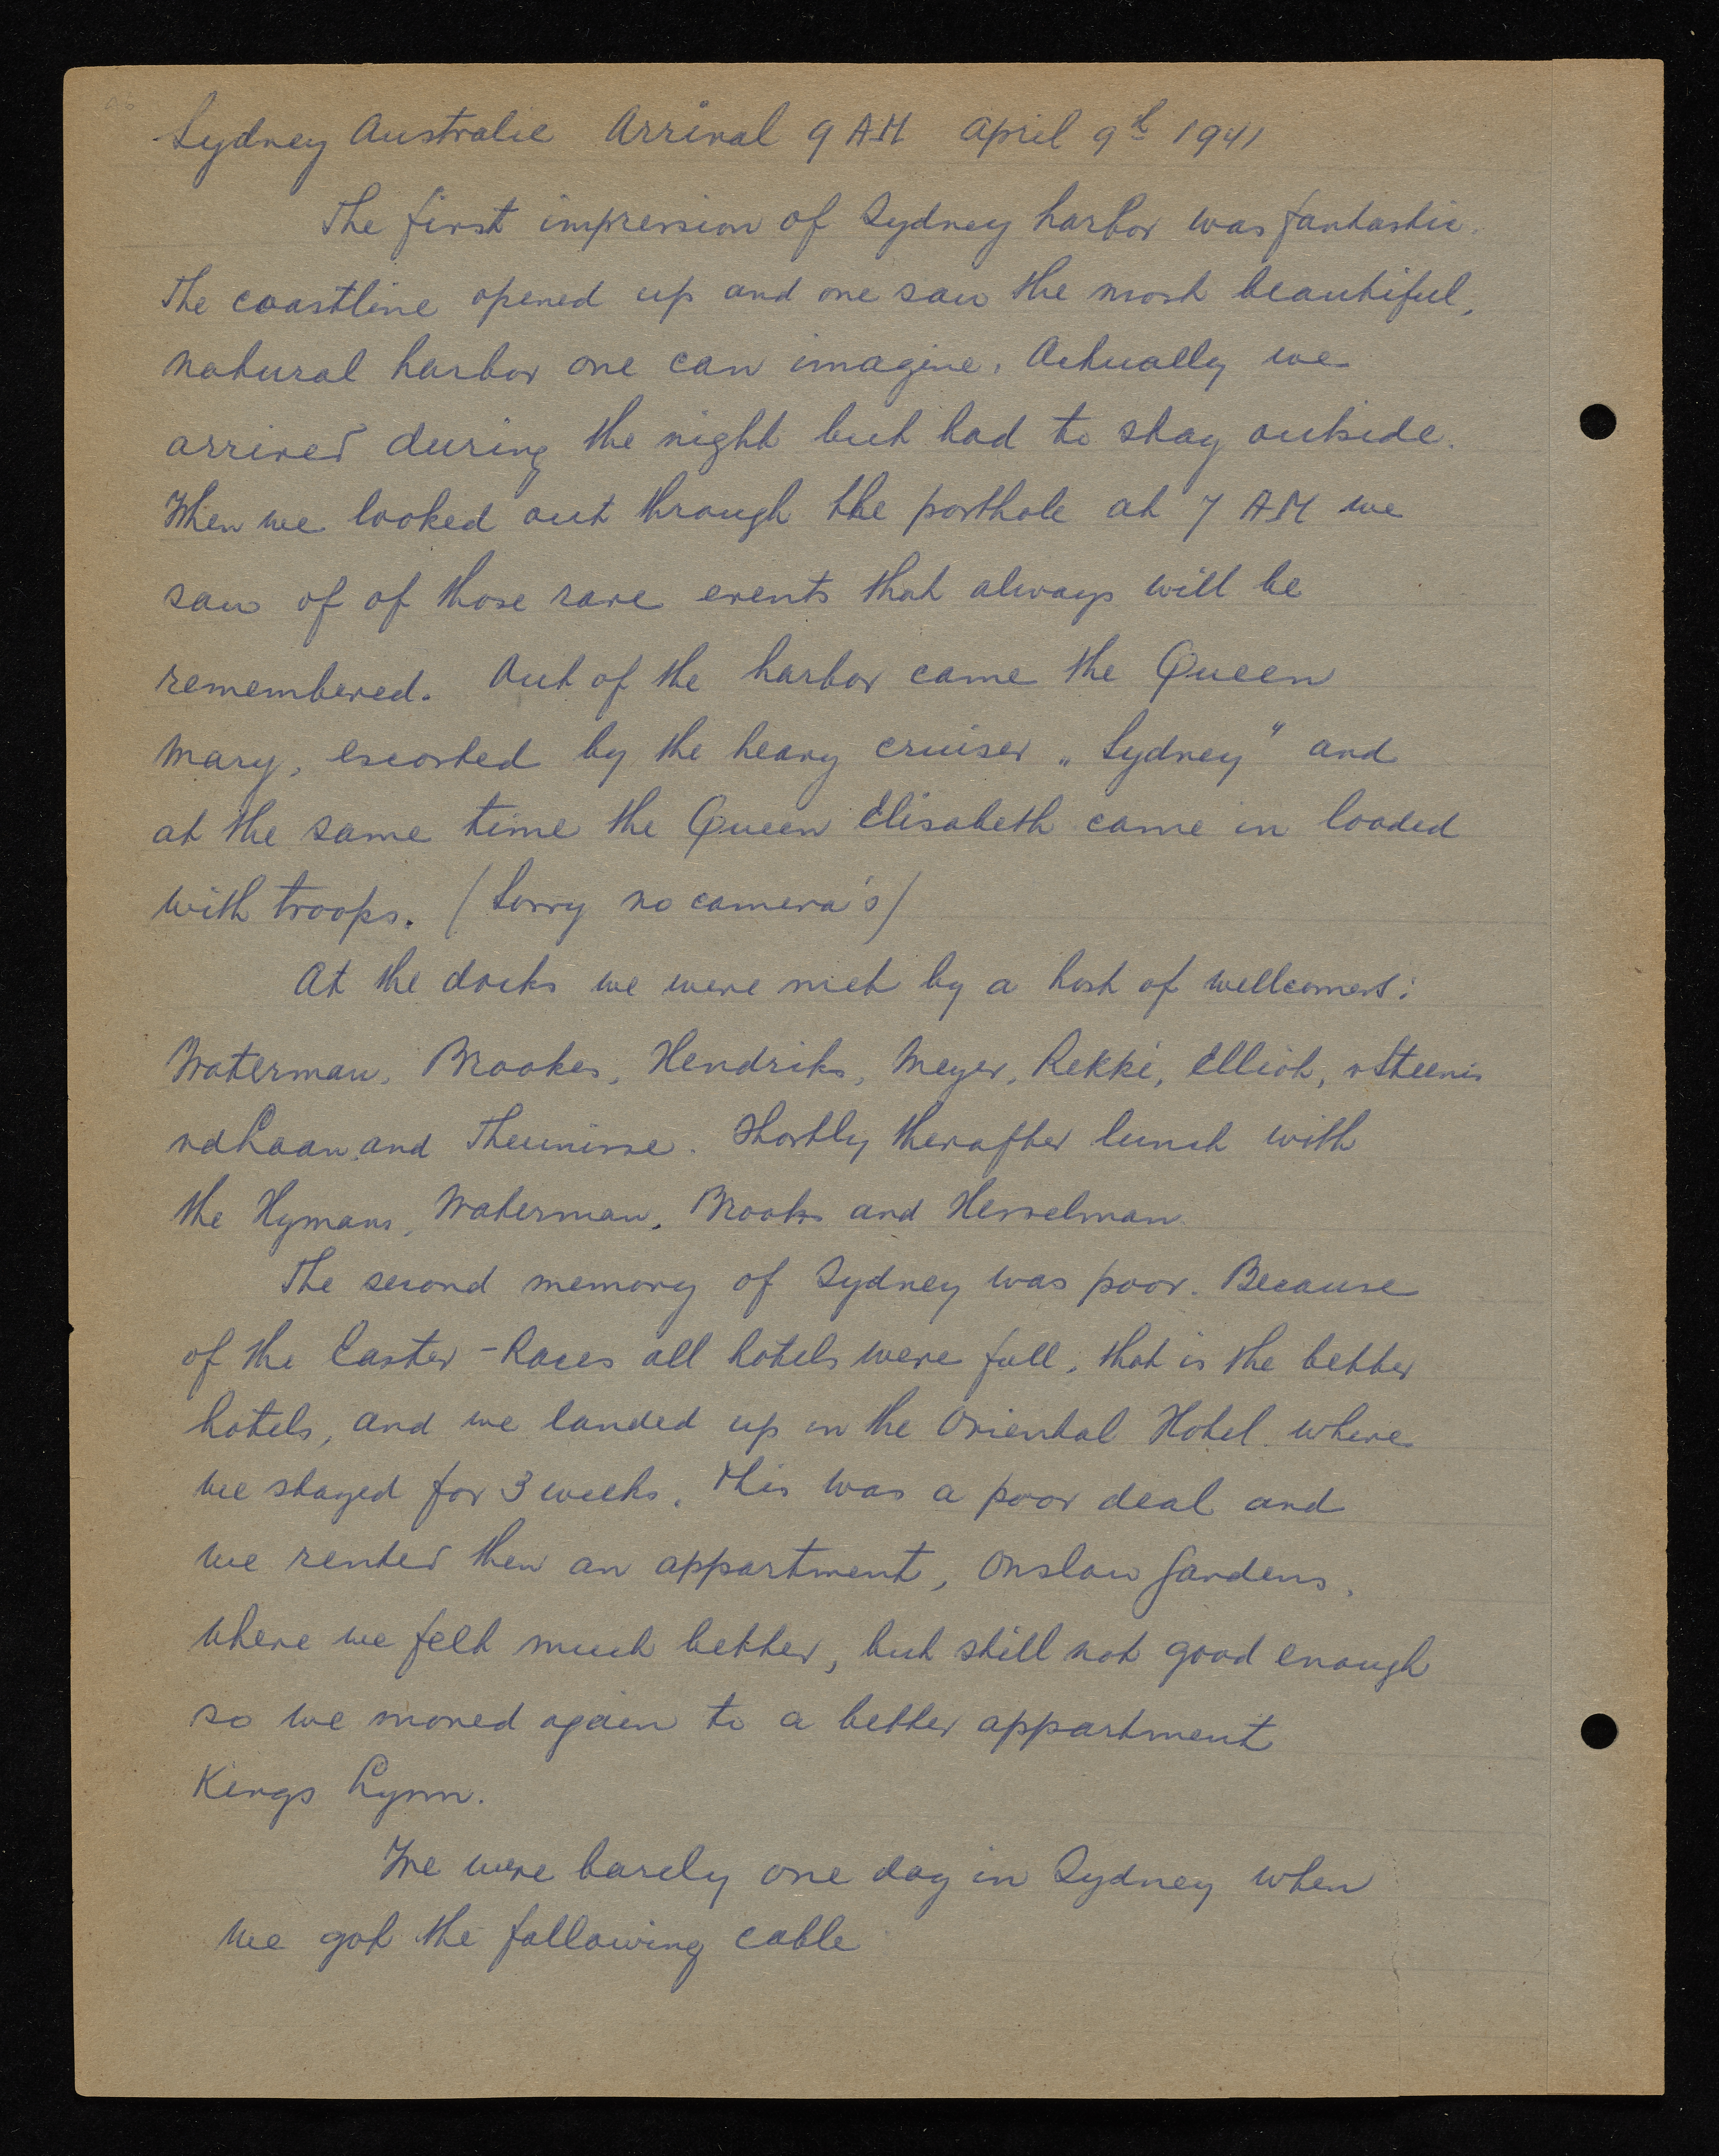 Sydney Australie Arrival 9 AM April 9th 1941
The first impression of Sydney harbor was fantastic.
The coastline opened up and one saw the most beautiful,
natural harbor one can imagine. Actually we
arrived during the night but had to stay outside.
When we looked out through the porthole at 7 AM we
saw of of those rare events that always will be
remembered. Out of the harbor came the Queen
Mary, escorted by the heavy cruiser „Sydney" and
at the same time the Queen Elisabeth came in loaded
with troops. (Sorry no camera's)
At the docks we were met by a host of wellcomers:
Waterman, Brookes, Hendriks, Meyer, Rekké, Elliot, vSteenis
vdLaan and Theunisse. Shortly therafter lunch with
the Hymans, Waterman, Brooks and Hesselman.
The second memory of Sydney was poor. Because
of the Easter-Races all hotels were full, that is the better
hotels, and we landed up in the Oriental Hotel where
we stayed for 3 weeks. This was a poor deal and
we rented then an appartment, Onslow Gardens,
where we felt much better, but still not good enough
so we moved again to a better appartment
Kings Lynn.
We were barely one day in Sydney when
we got the following cable